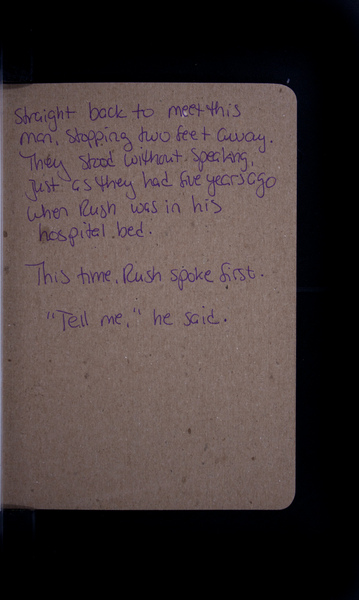 straight back to meet this
man, stopping two feet away.
They stood without speaking,
just as they had five years ago
when Rush was in his
hospital bed.
This time, Rush spoke first.
"Tell me," he said.